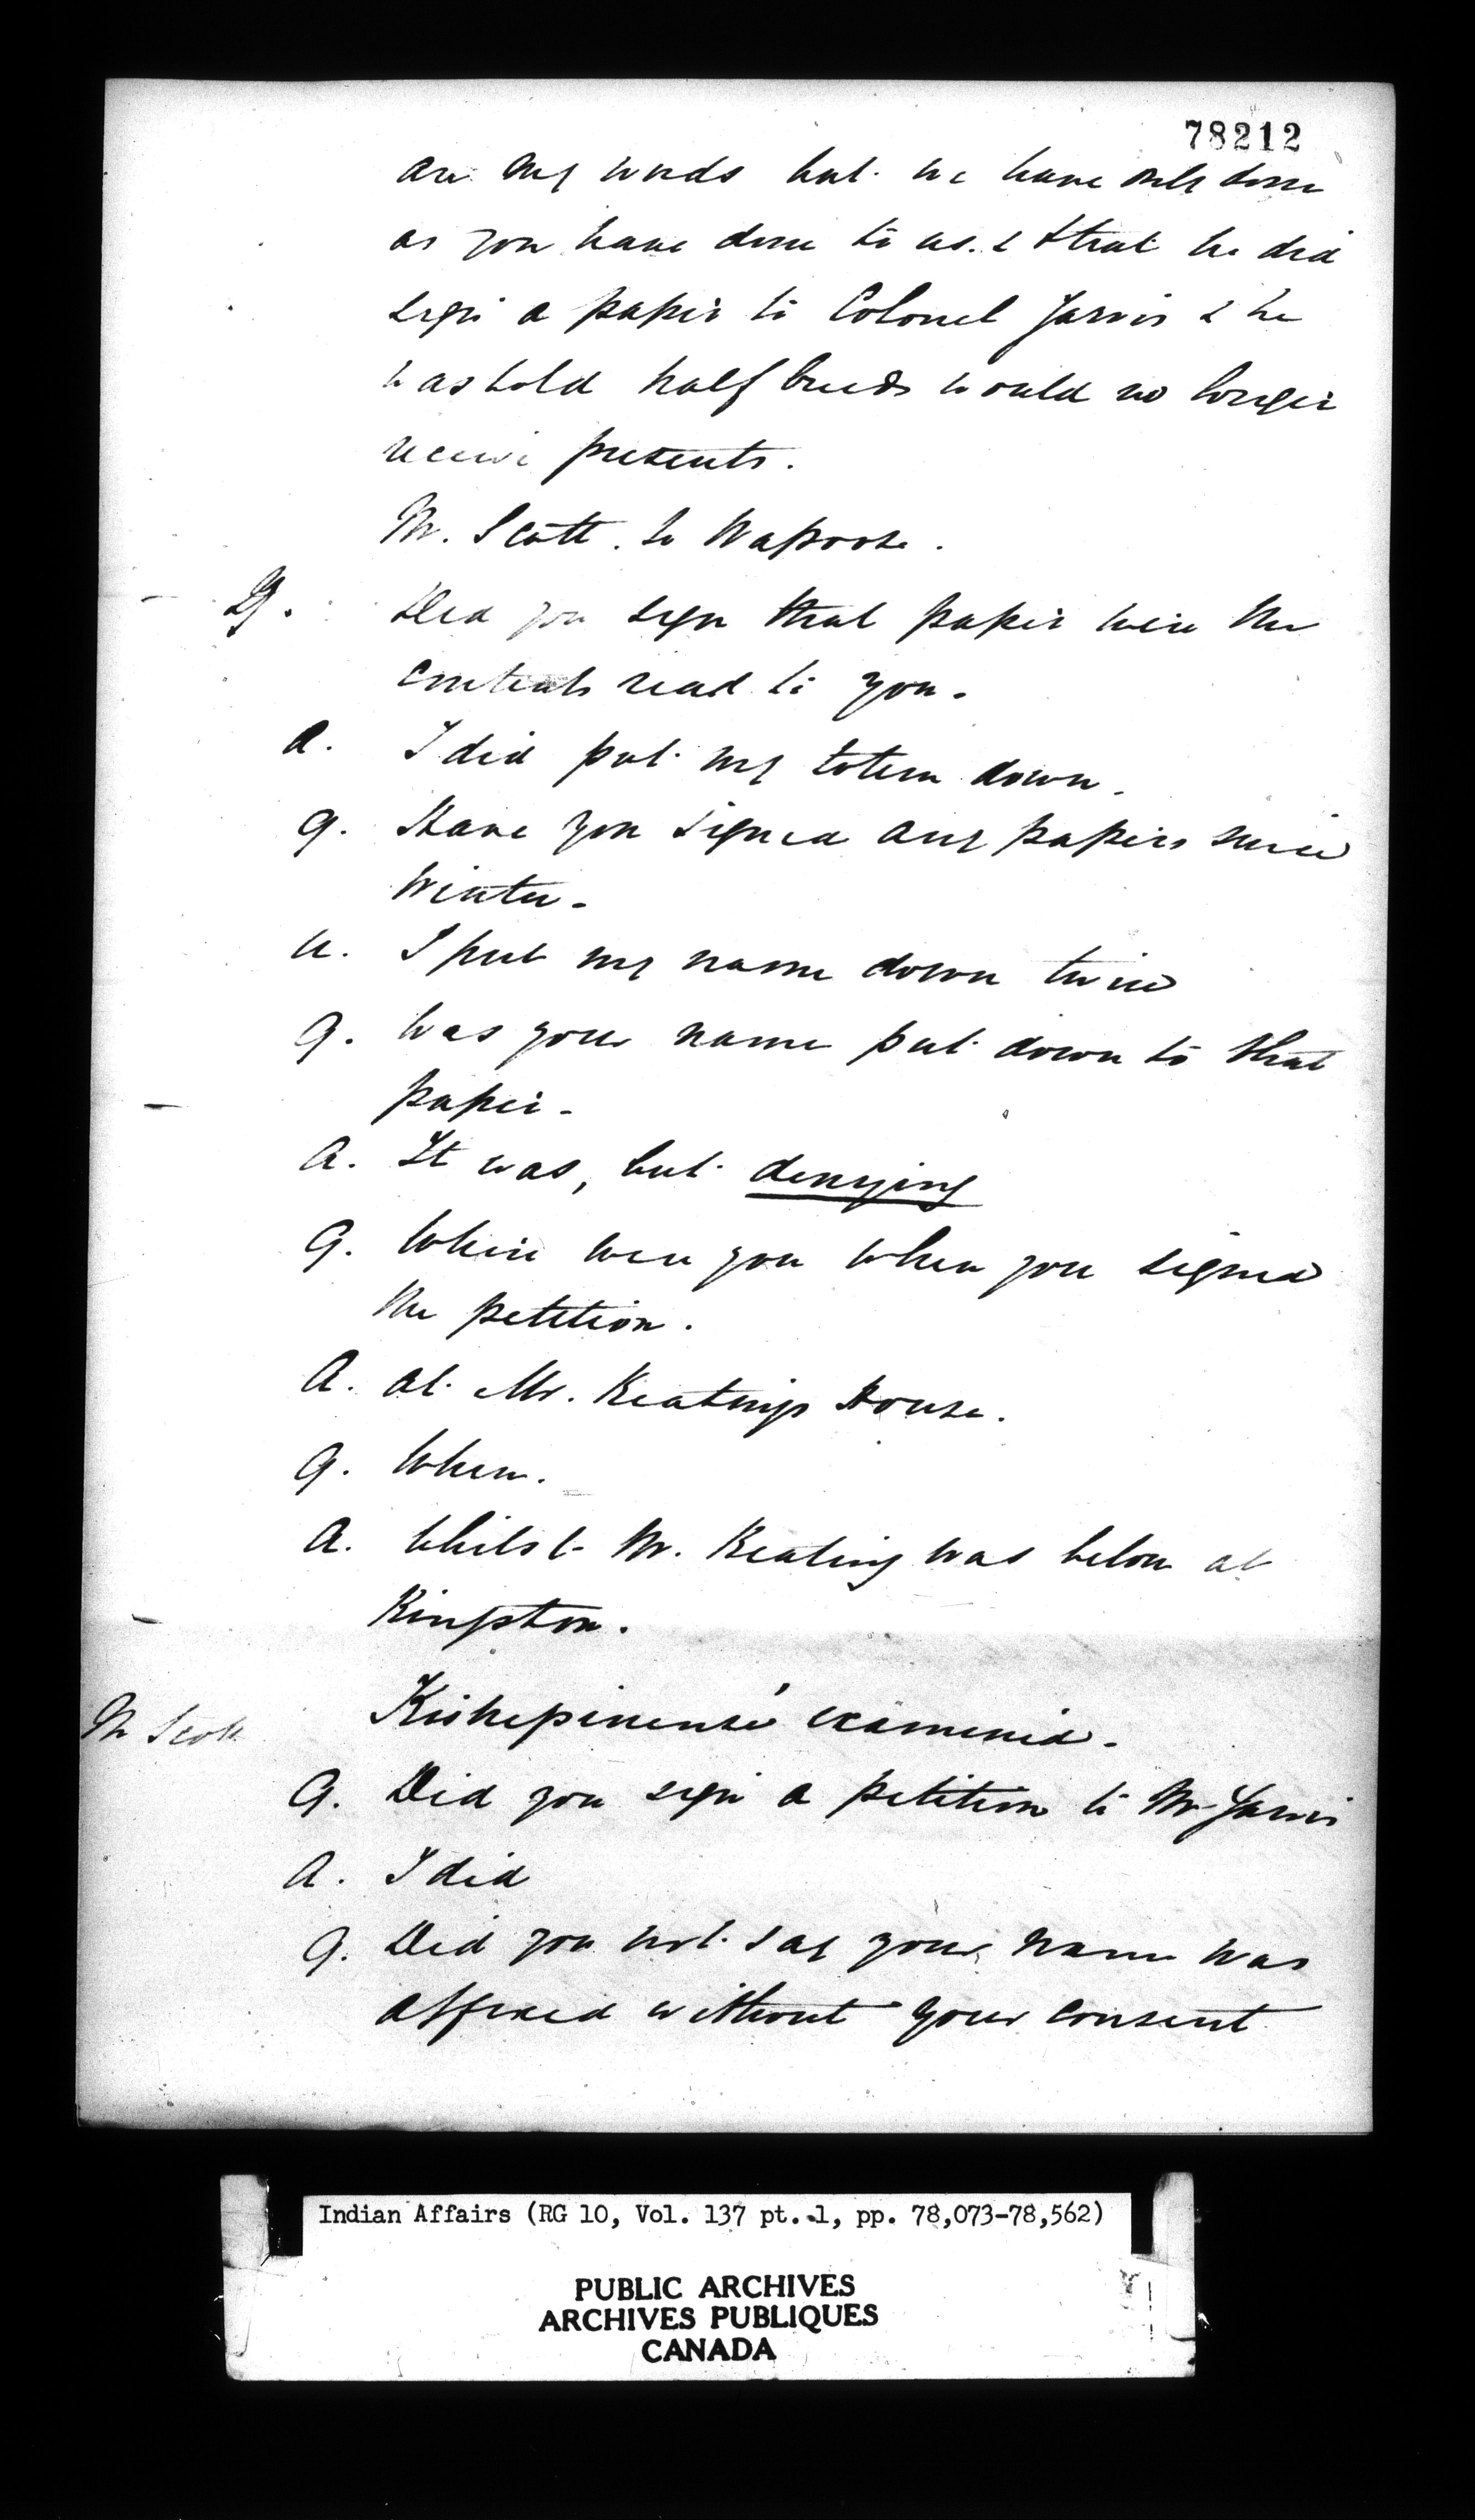 78212
are my words but we have only done
as you have done to us. & that he did
sign a paper to Colonel Jarvis & he
was told half breeds would no longer
receive presents.
Mr. Scott. to Wapoose.
Q. Did you sign that paper were the
contents read to you.
A. I did put my totem down.
Q. Have you signed any papers since
Winter.
A. I put my name down twice
Q. Was your name put down to that
paper.
A. It was, but denying
Q. Where were you when you signed
the petition.
A. At Mr. Keatings House.
Q. When.
A. Whilst Mr. Keating was below at
Kingston.
Mr Scott Kishepinensé examined.
Q. Did you sign a petition to Mr Jarvis
A. I did
Q. Did you not say your name was
affixed without your consent
Indian Affairs (RG 10, Vol. 137 pt. 1, pp. 78,073-78,562)
PUBLIC ARCHIVES
ARCHIVES PUBLIQUES
CANADA